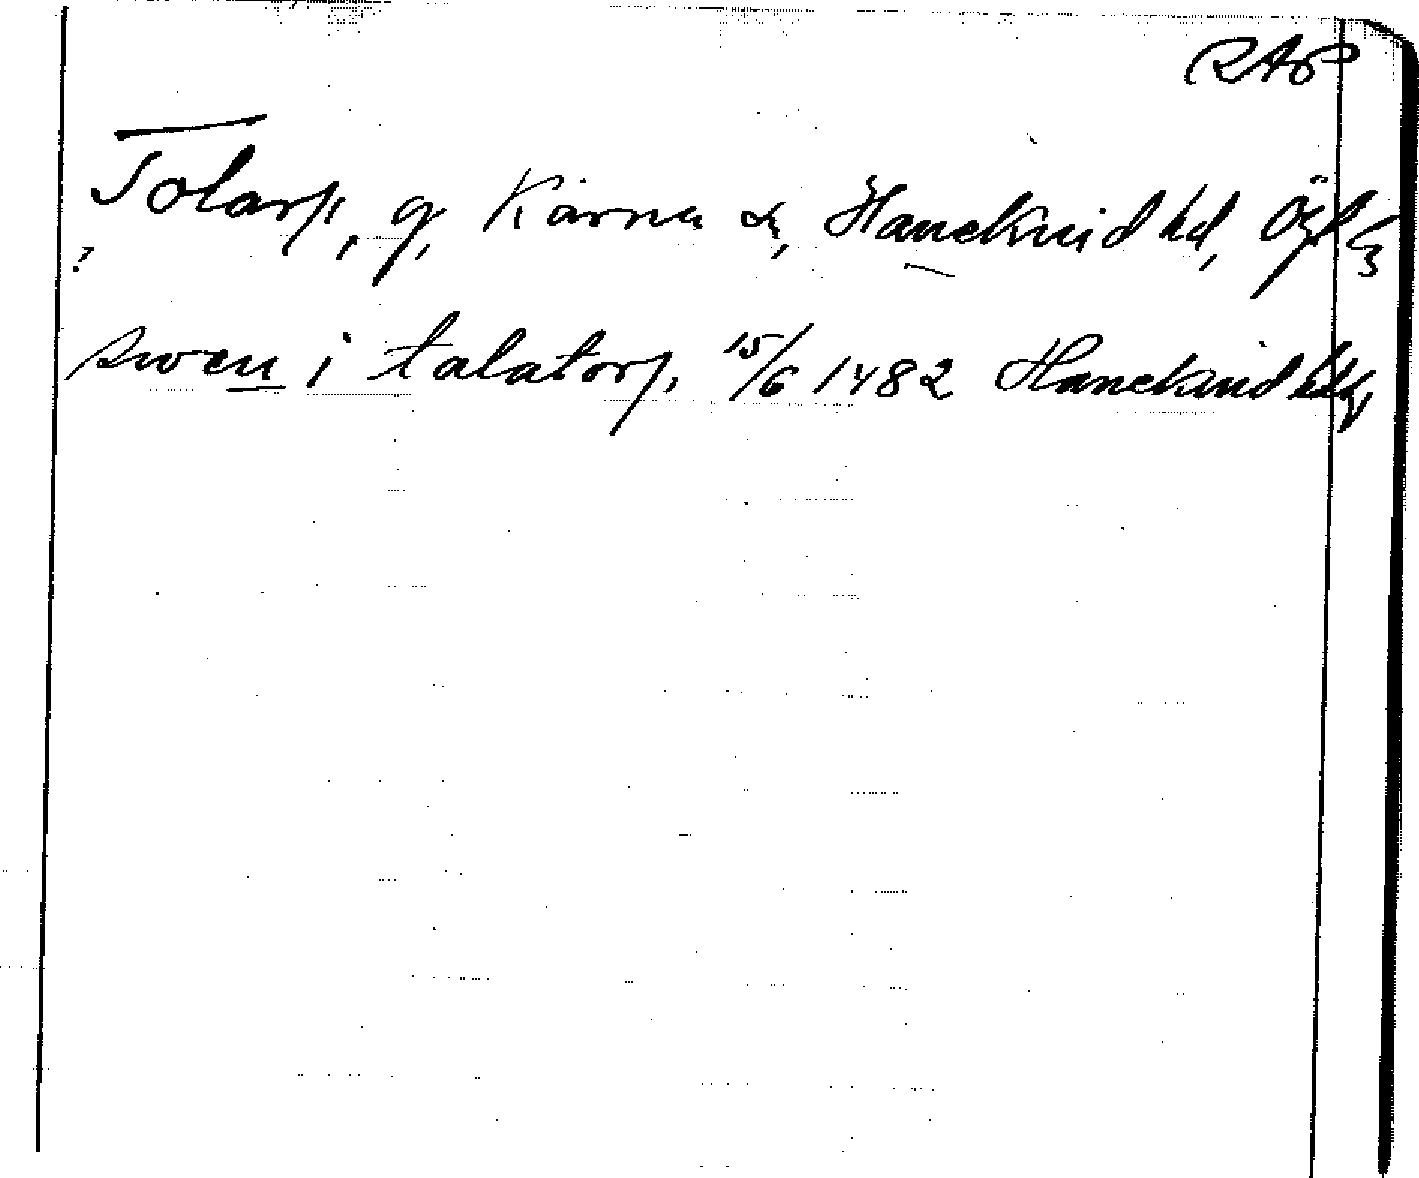 RAP
Tolarp, g, Kärna sn, Hanekind hd, Ögl
?
swen i talatorp, 15/6 1482 Hanekind hd